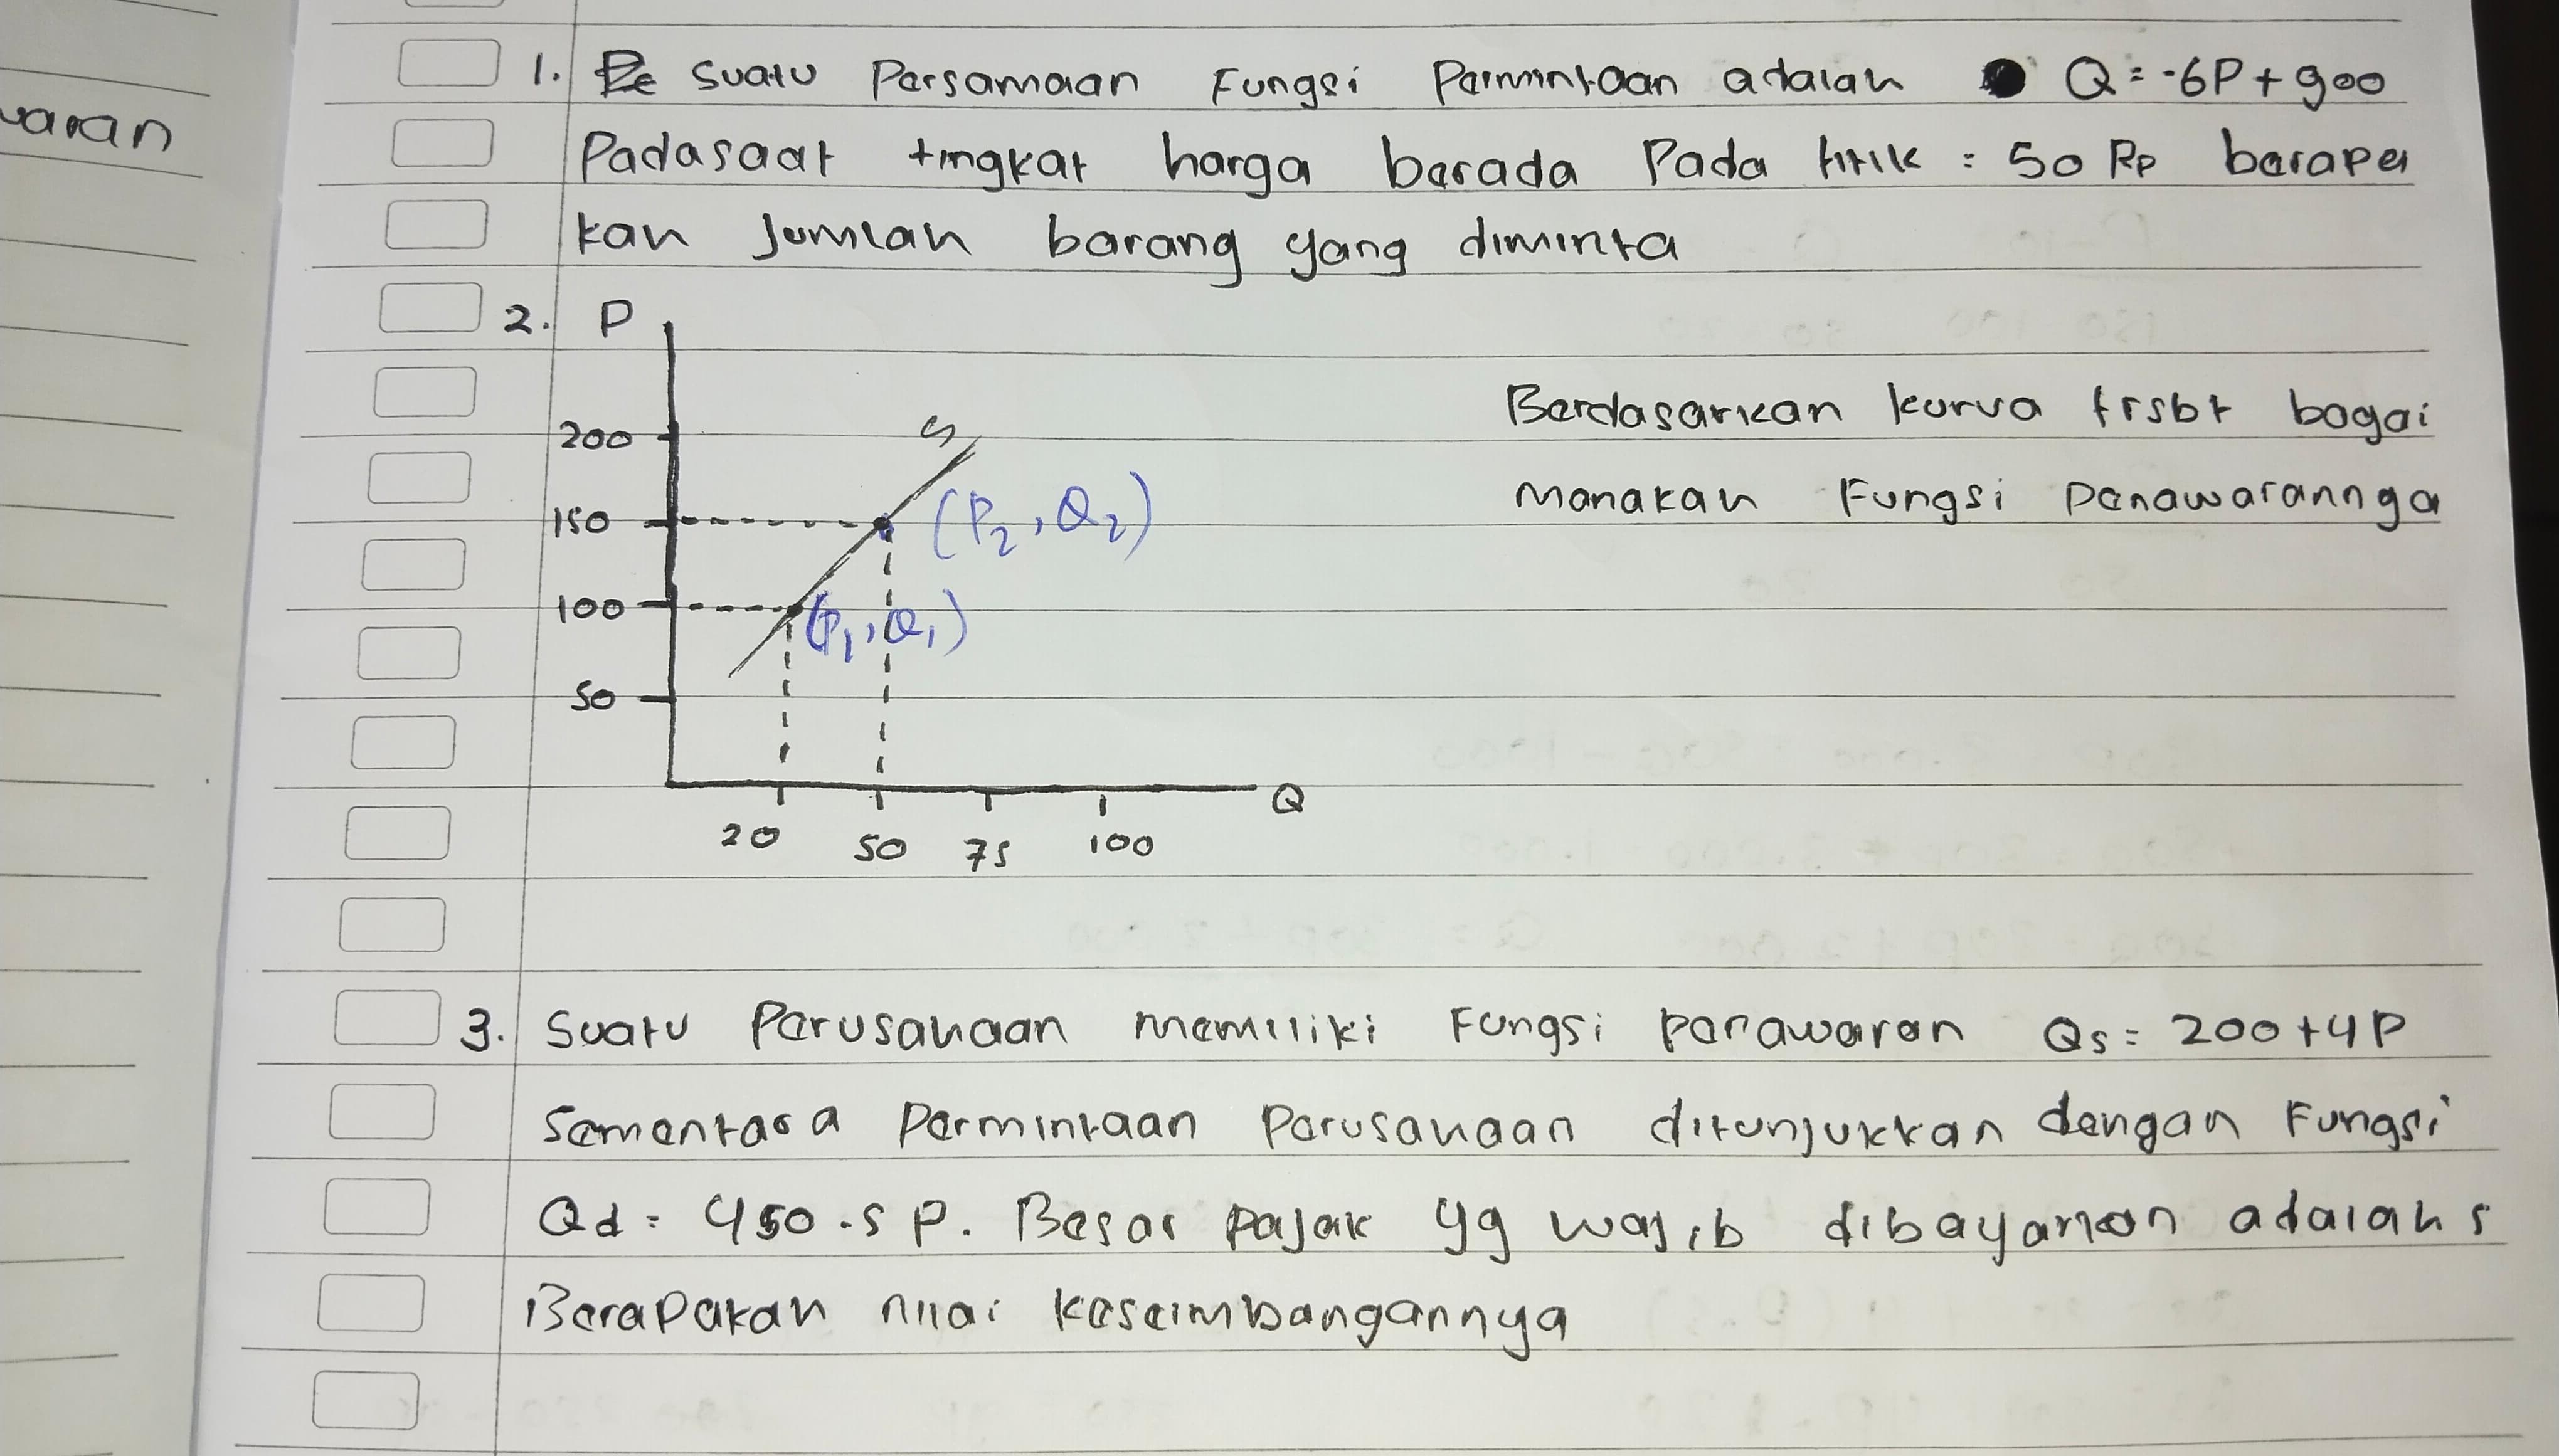 waran
1. Suatu Persamaan Fungsi Permintaan adalah Q = -6P + 900
Padasaat tingkat harga berada Pada titik = 50 Rp berapa
kah Jumlah barang yang diminta
2. P
200
150
100
50
S
(P2, Q2)
(P1, Q1)
20 50 75 100 Q
Berdasarkan kurva trsbt bagai
manakah Fungsi Penawarannya
3. Suatu Perusahaan memiliki Fungsi Penawaran Qs = 200 + 4P
Sementara Permintaan Perusahaan ditunjukkan dengan Fungsi
Qd = 450 - 5 P. Besar Pajak yg wajib dibayarkan adalah 5
Berapakah nilai keseimbangannya